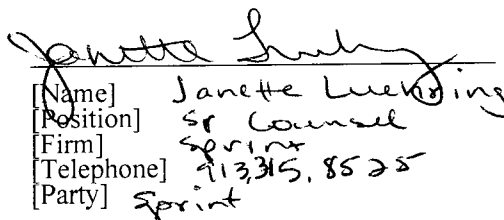 Janette Luehring
[Name] Janette Luehring
[Position] Sr Counsel
[Firm] Sprint
[Telephone] 913.315.8525
[Party] Sprint